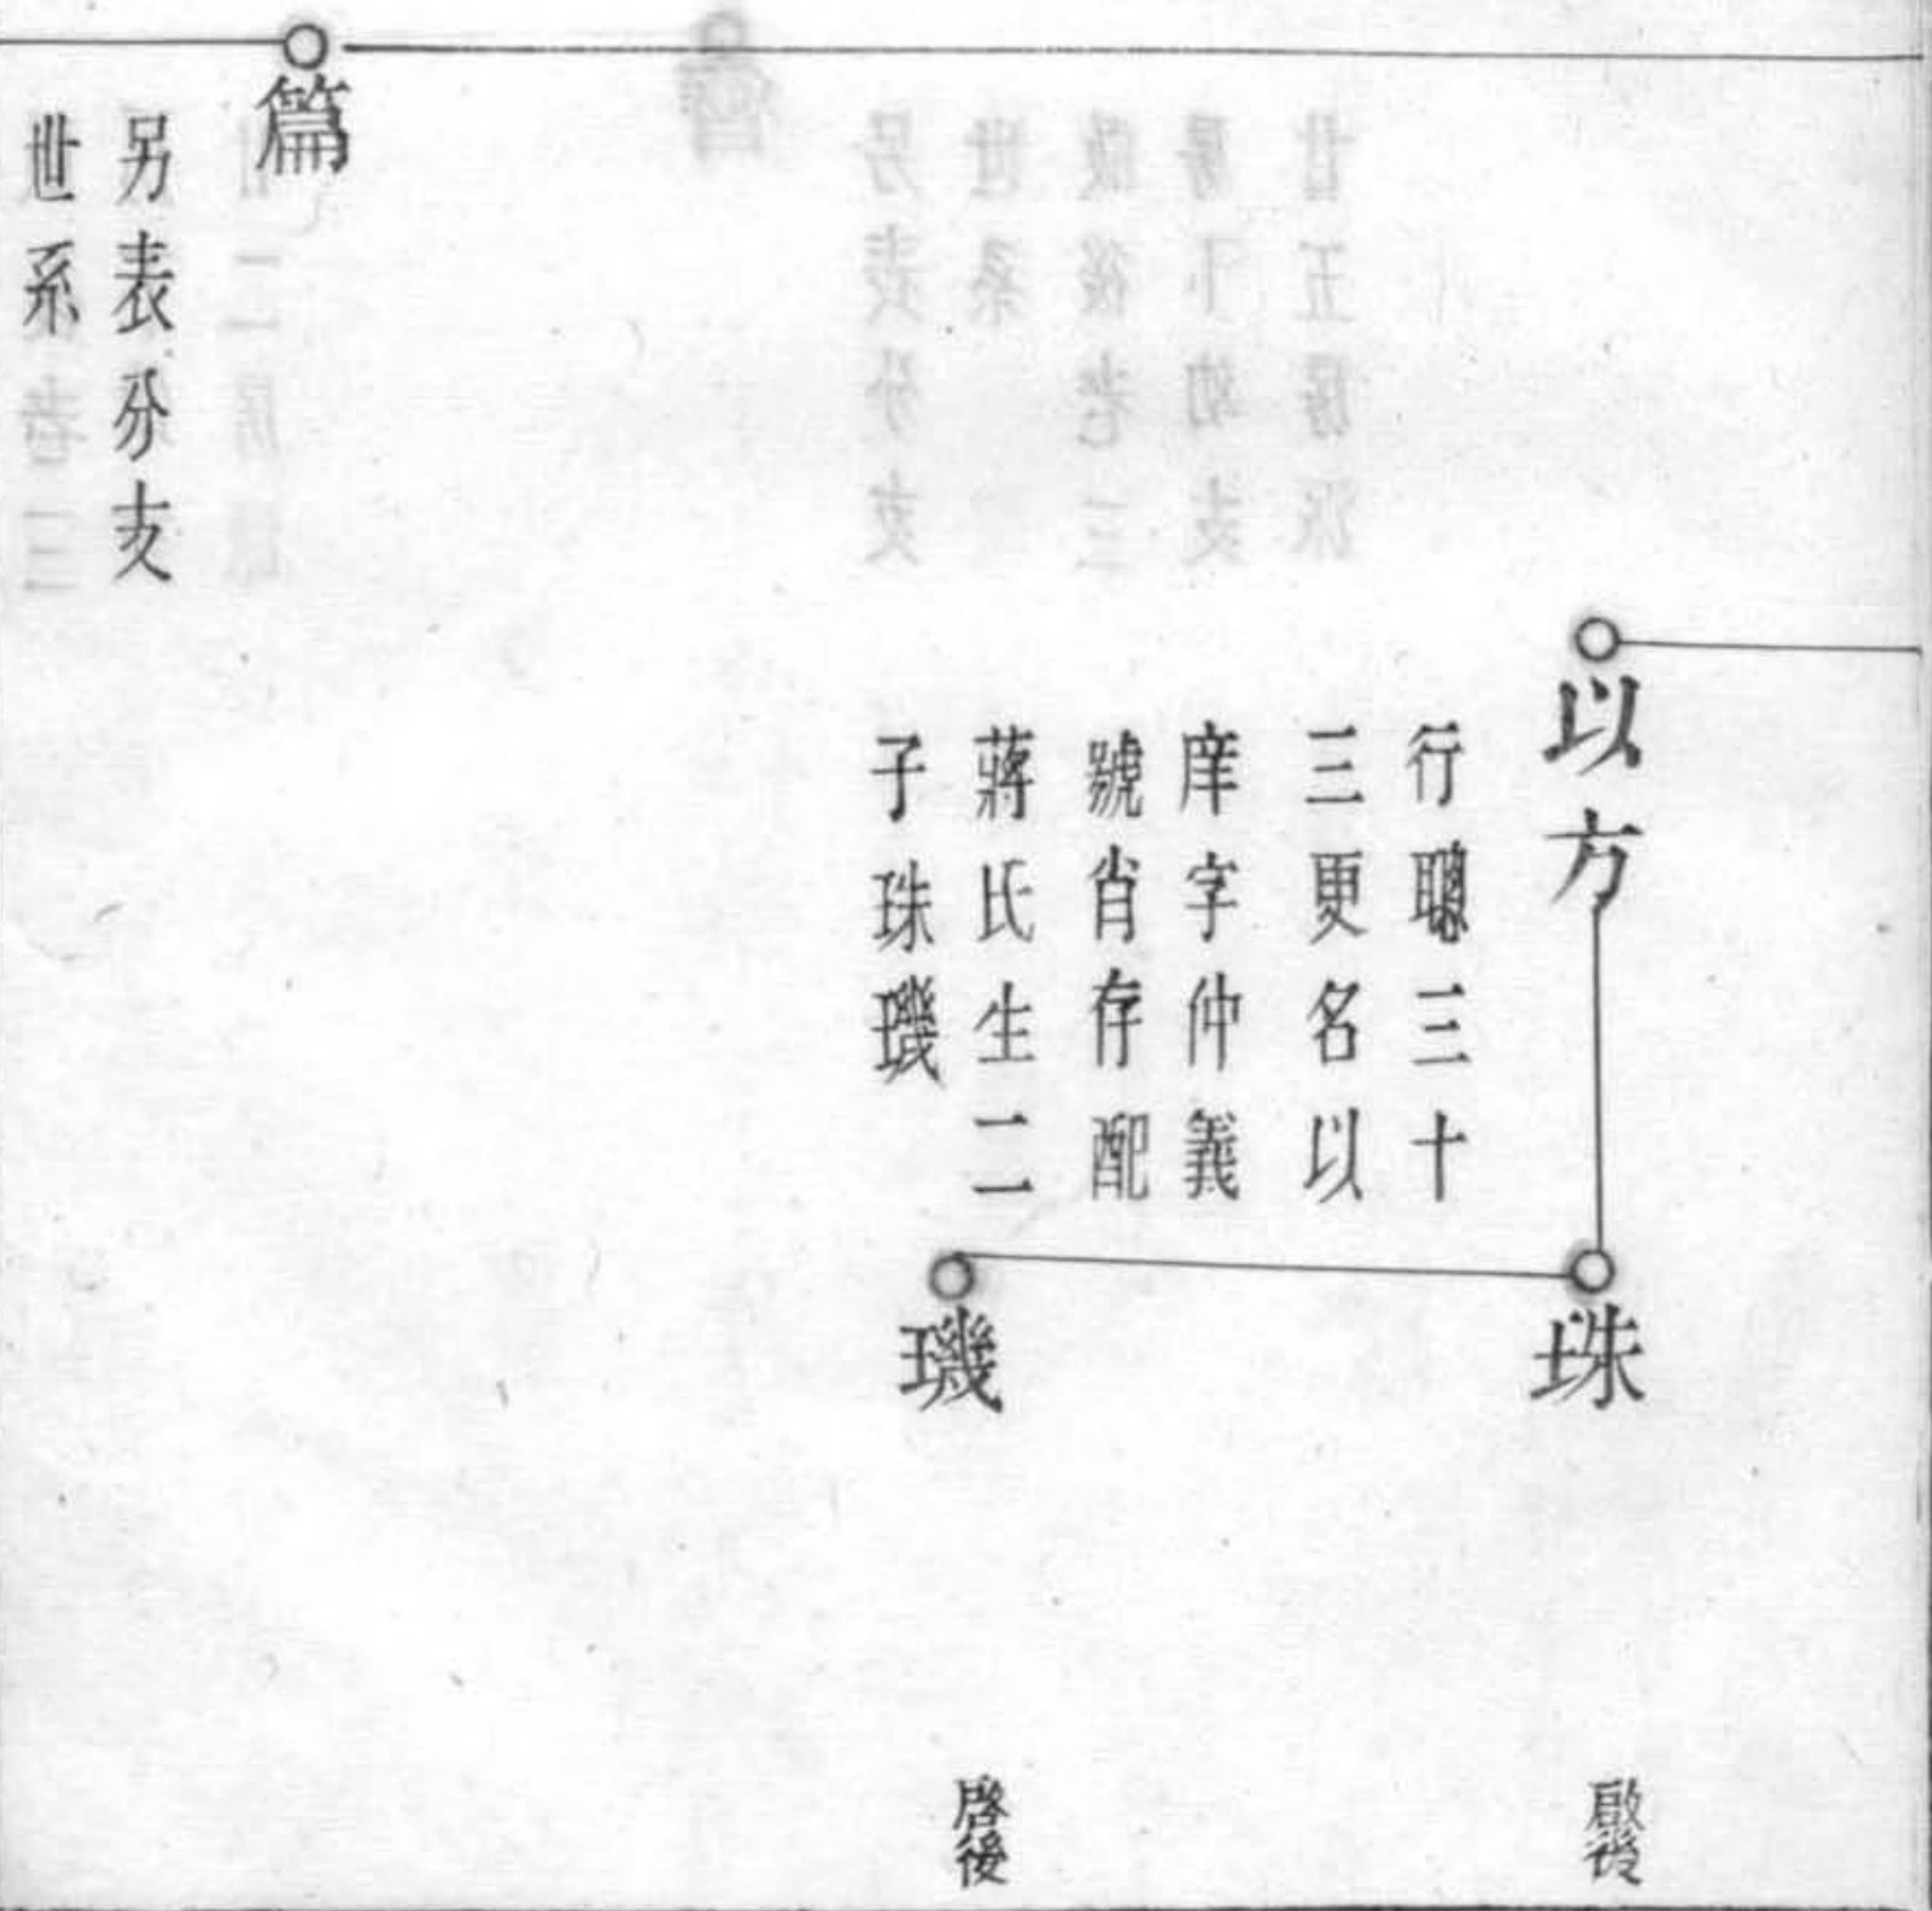 以方
行聰三十
三更名以
庠字仲義
號肖存配
蔣氏生二
子珠璣
珠
啟後
璣
啓後
篇
另表分支
世系